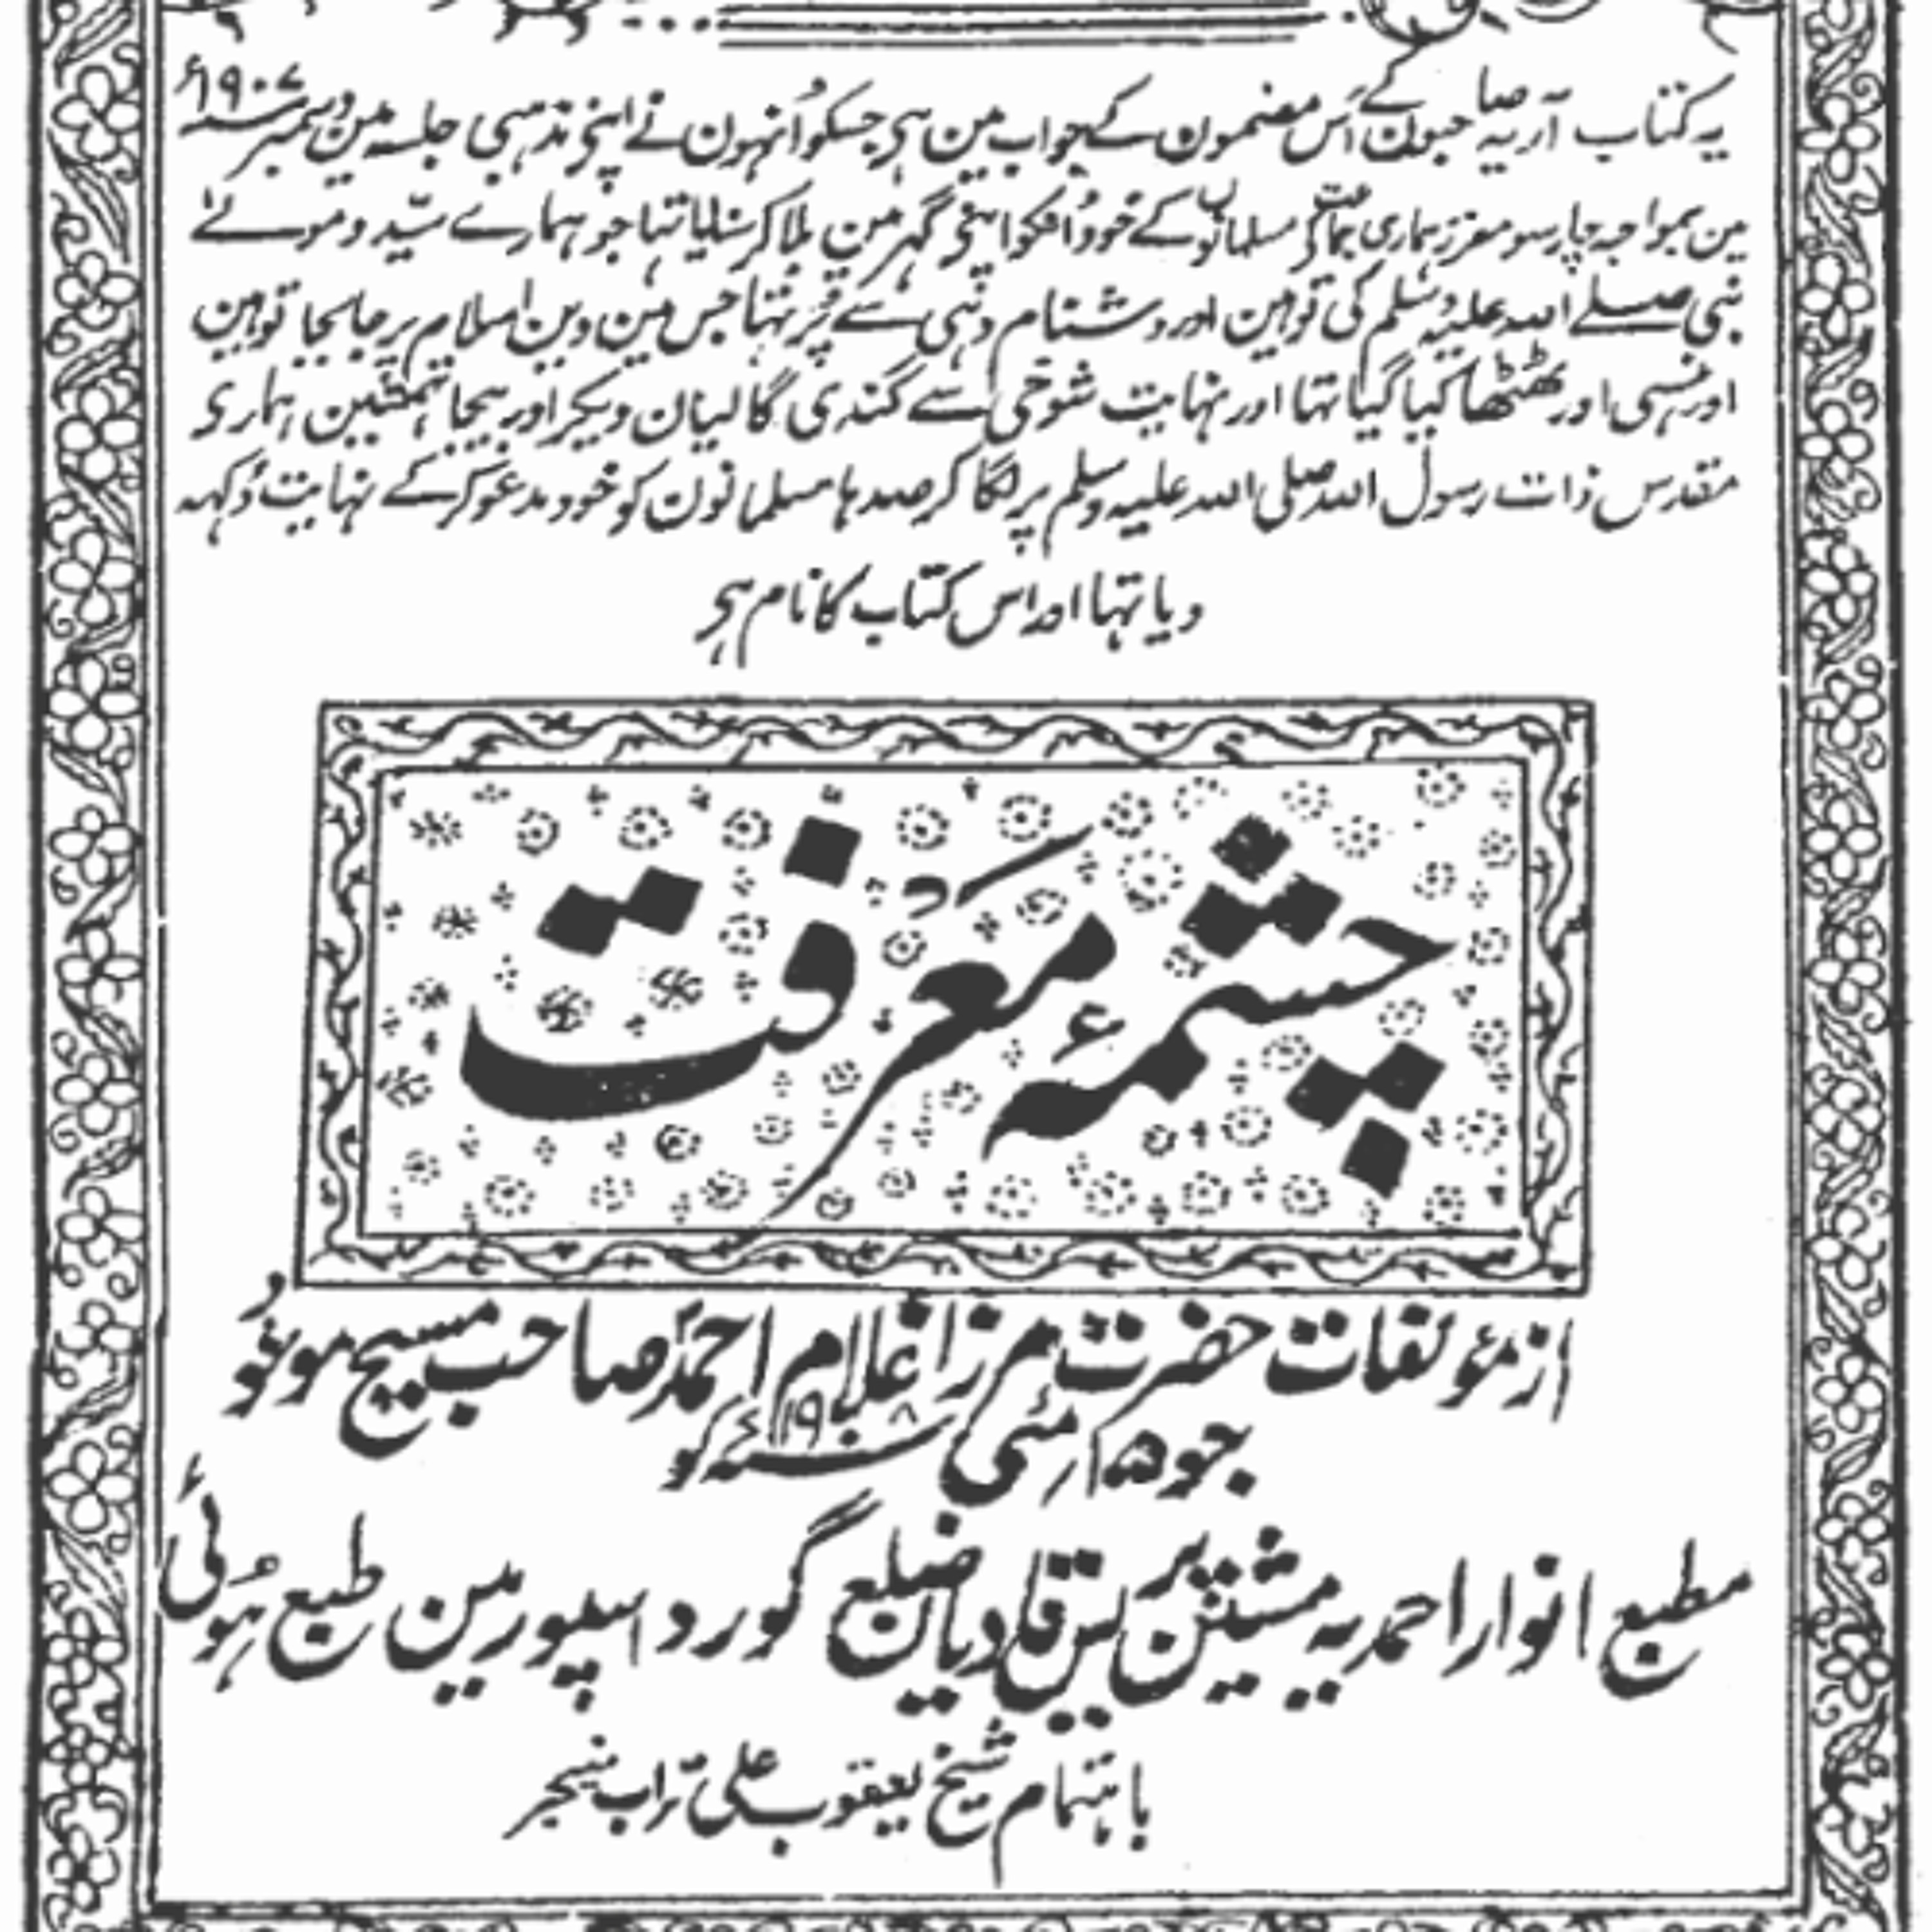 یہ کتاب آریہ صاحبون کے اُس مضمون کے جواب مین ہی جسکو اُنہون نے اپنی مذہبی جلسہ مین دسمبر ۱۹۰۷ء
مین بمواجہ چار سو معزز ہماری جماعت کی مسلمانوں کے خود اُنکو اپنی گہر مین بلا کر سنایا تہا جو ہمارے سیّد و مولےٰ
نبی صلے اللہ علیہ وسلم کی توہین اور دشنام دہی سے پُر تہا جس مین دین اسلام پر جابجا توہین
اور ہنسی اور ٹھٹھا کیا گیا تہا اور نہایت شوخی سے گندی گالیان دیکر اور بیجا تہمتین ہماری
مقدس ذات رسول اللہ صلی اللہ علیہ وسلم پر لگا کر صدہا مسلمانون کو خود مدعو کرکے نہایت دُکہہ
دیا تہا اور اس کتاب کا نام ہی
چشمۂ معرفت
از مؤلفات حضرت مرزا غلام احمدؐ صاحب مسیح موعود
بجو ۱۵ مئی ۱۹۰۸ء کو
مطبع انوار احمدیہ مشین پریس قادیان ضلع گورداسپور مین طبع ہُوئی
باہتمام شیخ یعقوب علی تراب منیجر